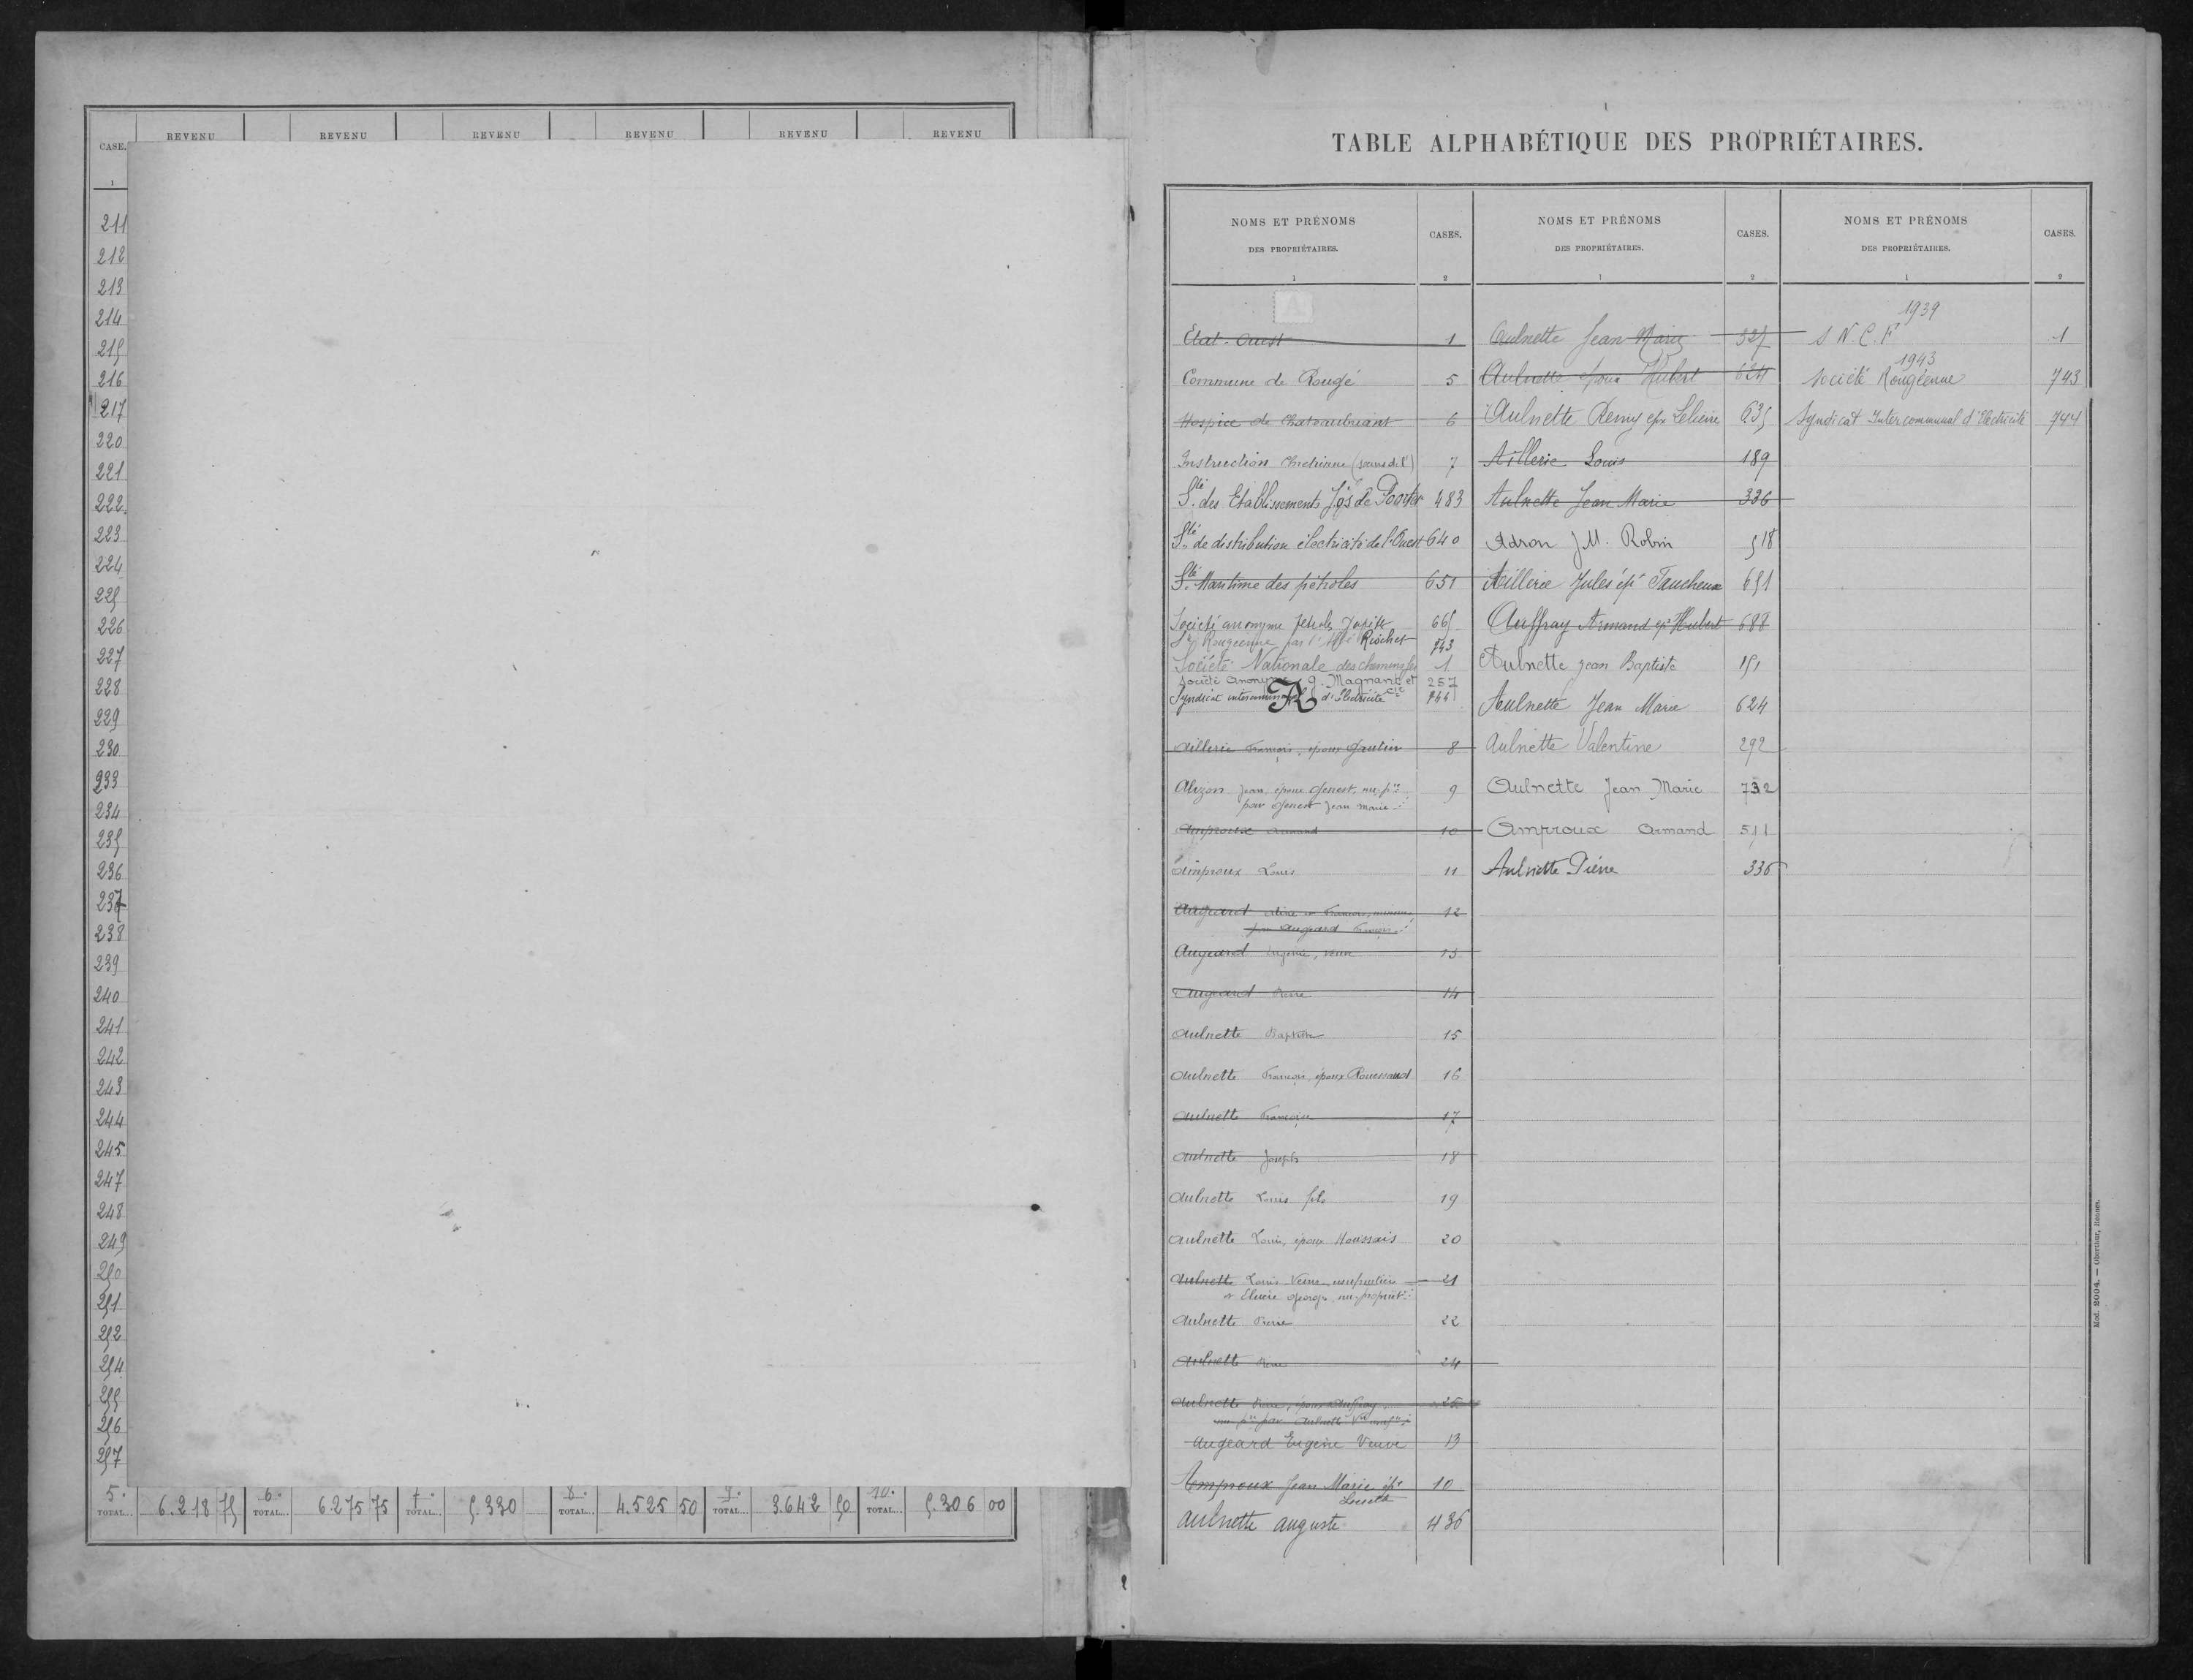 CASE.
REVENU
REVENU
REVENU
REVENU
REVENU
REVENU
1
211
212
213
214
215
216
217
220
221
222
223
224
225
226
227
228
229
230
233
234
235
236
237
238
239
240
241
242
243
244
245
247
248
249
250
251
252
254
255
256
257
5e TOTAL... 6.218 75 6e TOTAL... 6275 75 7e TOTAL... 5.330 8e TOTAL... 4.525 50 9e TOTAL... 3.642 50 10e TOTAL... 5.306 00
TABLE ALPHABÉTIQUE DES PROPRIÉTAIRES.
NOMS ET PRÉNOMS
DES PROPRIÉTAIRES.
CASES.
1
2
A
Etat-Ouest 1
Commune de Rougé 5
Hospice de Chateaubriant 6
Instruction Chrétienne (soeurs de l') 7
Sté des Etablissements Jos de Poorter 483
Sté de distribution électricité de l'Ouest 640
Sté Maritime des pétroles 651
Société anonyme Petrols Jupiter 665
Sté Rougéenne par l' Riocher 743
Société Nationale des chemins fer 1
Société Anonyme g. Magnant et Cie 257
Syndicat intercommunal d'Electricité 744
A
Aillerie François, époux Gautier 8
Alizon Jean, époux Genest, nu-pre
par Genest Jean Marie 9
Amproux Armand 10
Amproux Louis 11
Augeard Aline et François, mineurs
par Augeard François 12
Augeard Eugène, veuve 13
Augeard Pierre 14
Aulnette Baptiste 15
Aulnette François, époux Roussaud 16
Aulnette François 17
Aulnette Joseph 18
Aulnette Louis fils 19
Aulnette Louis, époux Houssais 20
Aulnette Louis Veuve usufruitière 21
et Elucie George nu-propriét.
Aulnette Pierre 22
Aulnette 24
Aulnette Pierre, époux Auffray
nu pre par Aulnette Ve 26
Augeard Eugène Veuve 13
Amproux Jean Marie épx 10
Aulnette Auguste 436
NOMS ET PRÉNOMS
DES PROPRIÉTAIRES.
CASES.
1
2
Aulnette Jean Marie 327
Aulnette époux Hubert 624
Aulnette Remy epx Lelievre 635
Aillerie Louis 189
Aulnette Jean Marie 336
Adron J.M. Robin 518
Aillerie Jules épx Faucheux 651
Auffray Armand ép Hubert 688
Aulnette Jean Baptiste 151
Aulnette Jean Marie 624
Aulnette Valentine 292
Aulnette Jean Marie 732
Amproux Armand 511
Aulnette Pierre 336
NOMS ET PRÉNOMS
DES PROPRIÉTAIRES.
CASES.
1
2
1939
S.N.C.F 1
1943
Société Rougéenne 743
Syndicat Intercommunal d'Electricité 744
Mod. 2004. — Oberthur, Rennes.